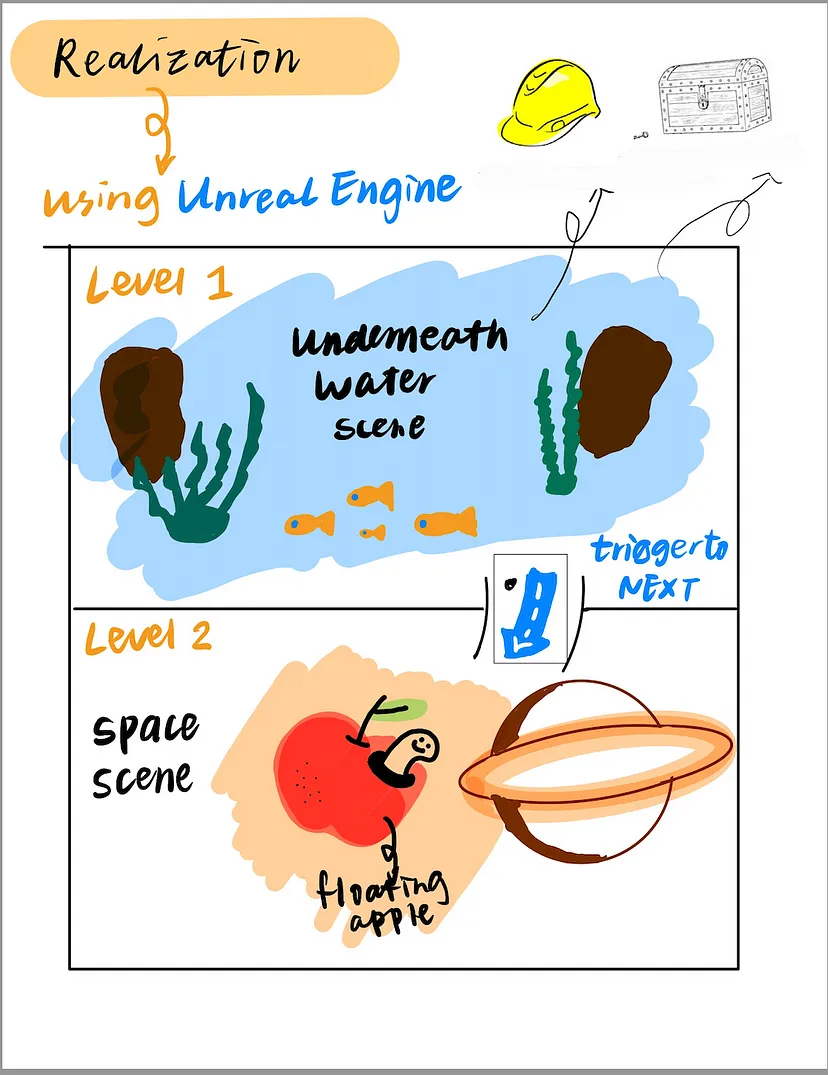 Realization
using Unreal Engine
Level 1
Underneath
water
scene
trigger to
NEXT
Level 2
space
scene
floating
apple